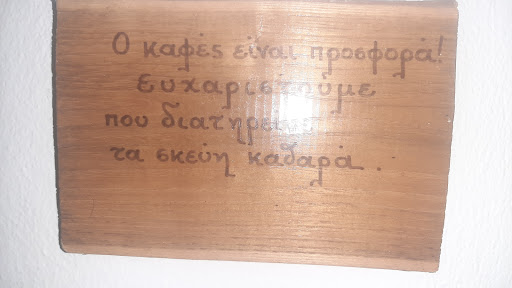 Ο καφές είναι προσφορά!
Ευχαριστούμε
που διατηρείτε
τα σκεύη καθαρά.